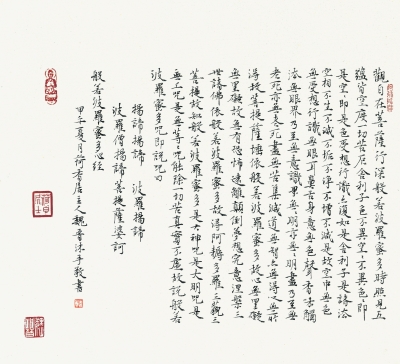 觀自在菩薩行深般若波羅蜜多時照見五
蘊皆空度一切苦厄舍利子色不異空空不異色色即
是空空即是色受想行識亦復如是舍利子是諸法
空相不生不滅不垢不淨不增不減是故空中無色
無受想行識無眼耳鼻舌身意無色聲香味觸
法無眼界乃至無意識界無無明亦無無明盡乃至無
老死亦無老死盡無苦集滅道無智亦無得以無所
得故菩提薩埵依般若波羅蜜多故心無罣礙
無罣礙故無有恐怖遠離顛倒夢想究竟涅槃三
世諸佛依般若波羅蜜多故得阿耨多羅三藐三
菩提故知般若波羅蜜多是大神咒是大明咒是
無上咒是無等等咒能除一切苦真實不虛故說般若
波羅蜜多咒即說咒曰
揭諦揭諦 波羅揭諦
波羅僧揭諦 菩提薩婆訶
般若波羅蜜多心經
甲午夏月荷香居主人魏沐手敬書